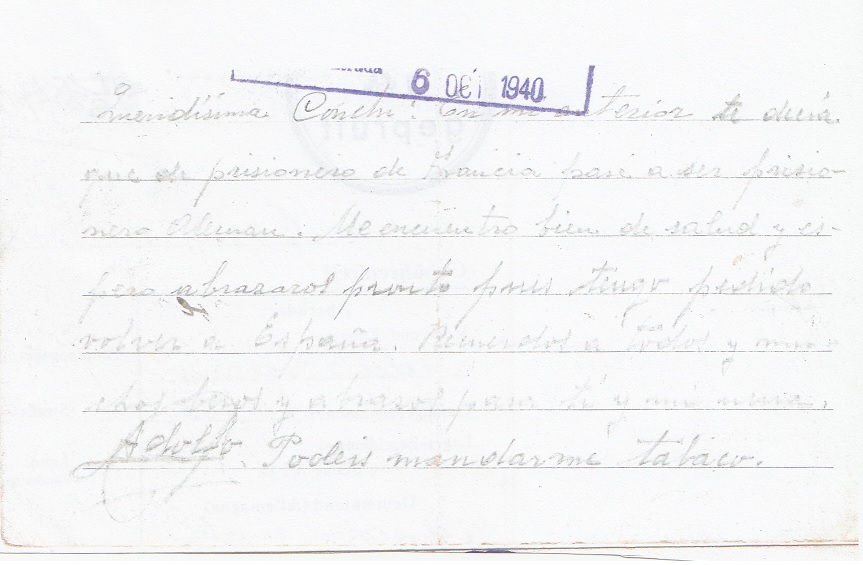 6 OCT 1940
Queridísima Conchi: En mi anterior te decía
que de prisionero de Francia pasé a ser prisio-
nero Aleman. Me encuentro bien de salud y es-
pero abrazaros pronto pues tengo pedido
volver a España. Recuerdos a todos y mu-
chos besos y abrazos para tí y mi nena.
Adolfo. Podeis mandarme tabaco.